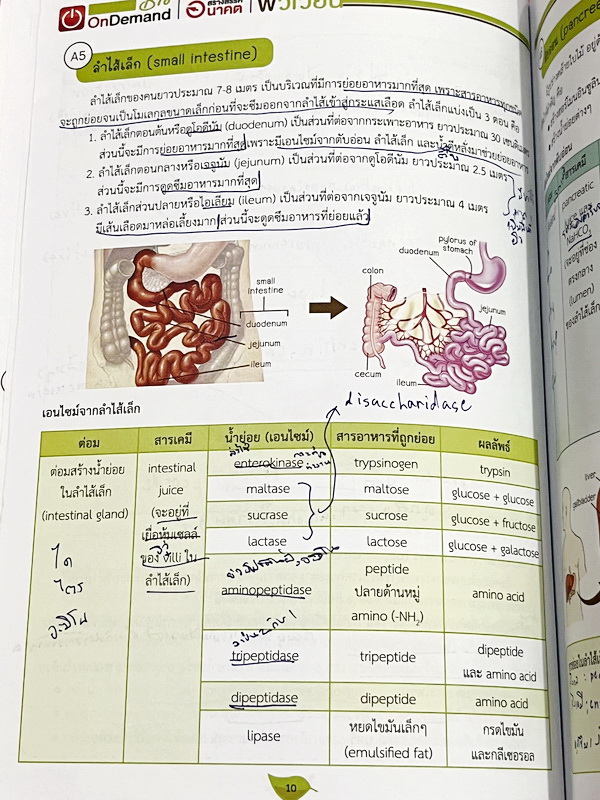 OnDemand
อนาคต
A5
ลำไส้เล็ก (small intestine)
ลำไส้เล็กของคนยาวประมาณ 7-8 เมตร เป็นบริเวณที่มีการย่อยอาหารมากที่สุด เพราะสารอาหารทุกชนิด
จะถูกย่อยจนเป็นโมเลกุลขนาดเล็กก่อนที่จะซึมออกจากลำไส้เข้าสู่กระแสเลือด ลำไส้เล็กแบ่งเป็น 3 ตอน คือ
1. ลำไส้เล็กตอนต้นหรือดูโอดีนัม (duodenum) เป็นส่วนที่ต่อจากกระเพาะอาหาร ยาวประมาณ 30 เซนติเมตร
ส่วนนี้จะมีการย่อยอาหารมากที่สุดเพราะมีเอนไซม์จากตับอ่อน ลำไส้เล็ก และน้ำดีหลั่งมาช่วยย่อยอาหาร
2. ลำไส้เล็กตอนกลางหรือเจจูนัม (jejunum) เป็นส่วนที่ต่อจากดูโอดีนัม ยาวประมาณ 2.5 เมตร
ส่วนนี้จะมีการดูดซึมอาหารมากที่สุด
3. ลำไส้เล็กส่วนปลายหรือไอเลียม (ileum) เป็นส่วนที่ต่อจากเจจูนัม ยาวประมาณ 4 เมตร
มีเส้นเลือดมาหล่อเลี้ยงมาก ส่วนนี้จะดูดซึมอาหารที่ย่อยแล้ว
small
intestine
duodenum
jejunum
ileum
pylorus of
stomach
duodenum
colon
jejunum
cecum
ileum
disaccharidase
เอนไซม์จากลำไส้เล็ก
ต่อม สารเคมี น้ำย่อย (เอนไซม์) สารอาหารที่ถูกย่อย ผลลัพธ์
ต่อมสร้างน้ำย่อย
ในลำไส้เล็ก
(intestinal gland)
ไค
ไตร
อะมิโน
intestinal
juice
(จะอยู่ที่
เยื่อหุ้มเซลล์
ของ villi ใน
ลำไส้เล็ก)
enterokinase trypsinogen trypsin
maltase maltose glucose + glucose
sucrase sucrose glucose + fructose
lactase lactose glucose + galactose
aminopeptidase
peptide
ปลายด้านหมู่
amino (-NH₂)
amino acid
tripeptidase tripeptide
dipeptide
และ amino acid
dipeptidase dipeptide amino acid
lipase
หยดไขมันเล็กๆ
(emulsified fat)
กรดไขมัน
และกลีเซอรอล
10
(pancreas
pancreatic
NaHCO₃
(จะอยู่ที่ช่อง
ตรงกลาง
(lumen)
ของลำไส้เล็ก
liver
gallbladder